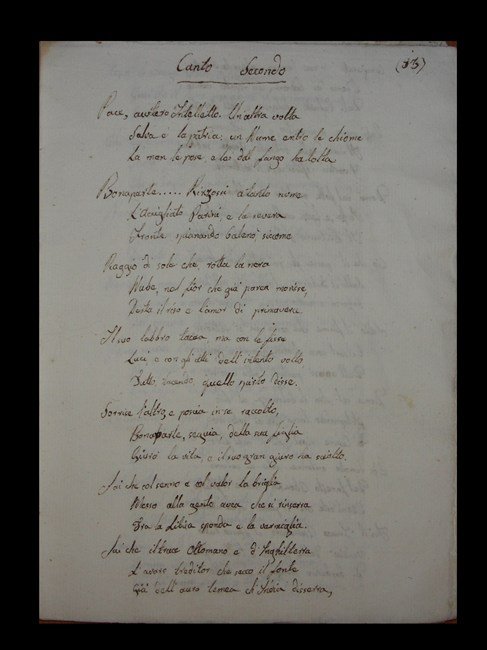 Canto Secondo (13)
Pace, austero Intelletto. Un'altra volta
Salva è la patria; un Nume entro le chiome
La man le pose e lei dal fango ha tolta
Bonaparte..... Rizzossi a tanto nome
L'Accigliato Parini e la severa
Fronte spianando balenò siccome
Raggio di sole che, rotta la nera
Nube, nel fior che già parea morisse,
Desta il riso e l'amor di primavera.
Il suo labbro tacea, ma con le fisse
Luci e con gli atti dell'intento volto
Tutto, tacendo, quello spirto disse.
Sorrise l'altro e poscia in se raccolto,
Bonaparte, seguia, della sua figlia
Giurò la vita, e il suo gran giuro ha sciolto.
Sai che col senno e col valor la briglia
Messo alla gente avea che si rinserra
Tra la Libica sponda e la vermiglia.
Sai che il truce Ottomano e d'Inghilterra
L'avaro traditor che secco il fonte
Già dell'auro temea ch'India disserra,